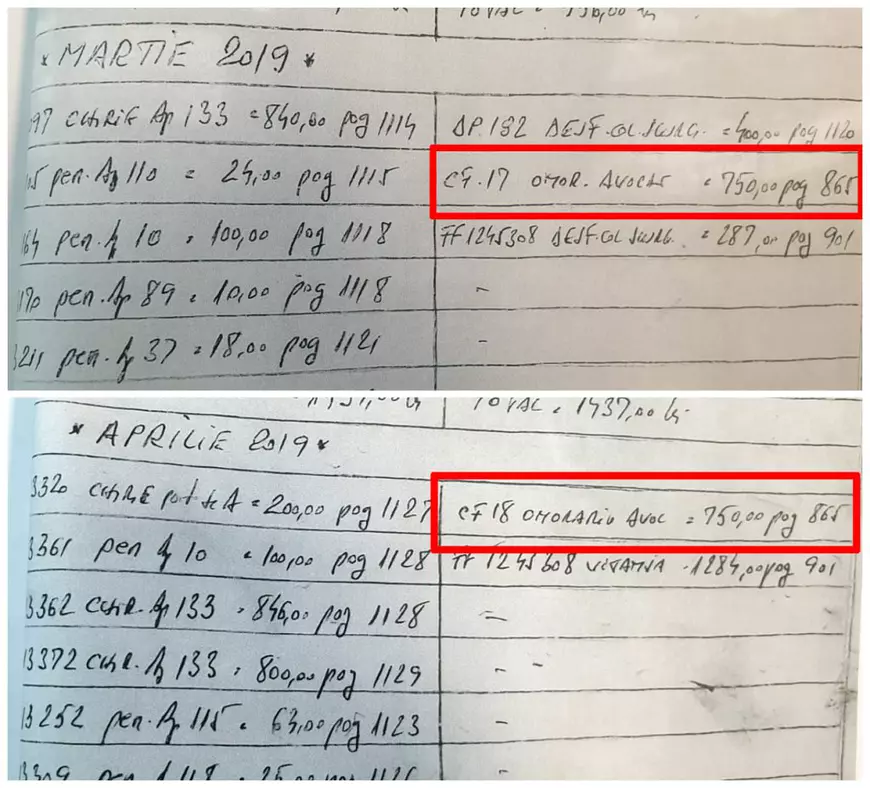 TOTAL = 
* MARTIE 2019 *
97 CHIRIE Ap 133 = 840,00 pag 1114
DP.192 DESF.COL.JURG. = 400,00 pag 1120
15 pen. Ap 110 = 24,00 pag 1115
CF.17 ONOR. AVOCAT = 750,00 pag 865
164 pen. Ap 10 = 100,00 pag 1118
FF 1245308 DESF.COL JURG. = 287,00 pag 901
1170 pen. Ap 89 = 10,00 pag 1118
-
3211 pen. Ap 37 = 18,00 pag 1121
-
TOTAL = 1437,00 lei
* APRILIE 2019 *
3320 CHIRIE = 200,00 pag 1127
CF 18 ONORARIU AVOC = 750,00 pag 865
3361 pen Ap 10 = 100,00 pag 1128
FF 1245308 = 1284,00 pag 901
13362 CHIR. Ap 133 = 846,00 pag 1128
-
13372 CHIR. Ap 133 = 800,00 pag 1129
- -
13252 pen. Ap 115 = 63,00 pag 1123
-